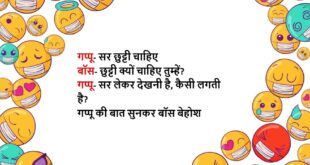 गप्पू- सर छुट्टी चाहिए
बॉस- छुट्टी क्यों चाहिए तुम्हें?
गप्पू- सर लेकर देखनी है, कैसी लगती
है?
गप्पू की बात सुनकर बॉस बेहोश